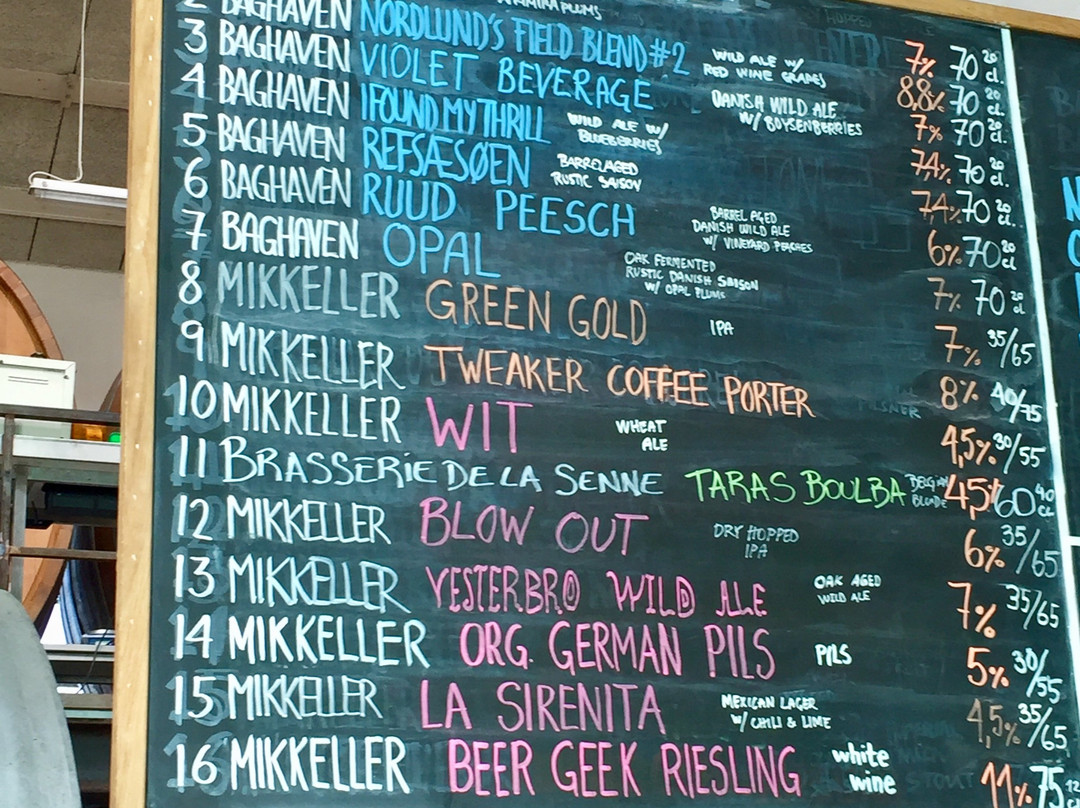 AMIRA PLUMS 7% 70 20 cl.
2 BAGHAVEN NORDLUND'S FIELD BLEND #2 WILD ALE W/
RED WINE GRAPES 8,8% 70 20 cl.
3 BAGHAVEN VIOLET BEVERAGE DANISH WILD ALE
W/ BOYSENBERRIES 7% 70 20 cl.
4 BAGHAVEN I FOUND MY THRILL WILD ALE W/
BLUEBERRIES 7,4% 70 20 cl.
5 BAGHAVEN REFSÆSØEN BARREL AGED
RUSTIC SAISON 7,4% 70 20 cl.
6 BAGHAVEN RUUD PEESCH BARREL AGED
DANISH WILD ALE
W/ VINEYARD PEACHES 6% 70 20 cl
7 BAGHAVEN OPAL OAK FERMENTED
RUSTIC DANISH SAISON
W/ OPAL PLUMS 7% 70 20 cl
8 MIKKELLER GREEN GOLD IPA 7% 35/65
9 MIKKELLER TWEAKER COFFEE PORTER 8% 40/75
10 MIKKELLER WIT WHEAT
ALE 4,5% 30/55
11 BRASSERIE DE LA SENNE TARAS BOULBA BELGIAN
BLONDE 4,5% 60 40 cl
12 MIKKELLER BLOW OUT DRY HOPPED
IPA 6% 35/65
13 MIKKELLER VESTERBRO WILD ALE OAK AGED
WILD ALE 7% 35/65
14 MIKKELLER ORG. GERMAN PILS PILS 5% 30/55
15 MIKKELLER LA SIRENITA MEXICAN LAGER
W/ CHILI & LIME 4,5% 35/65
16 MIKKELLER BEER GEEK RIESLING white
wine 11% 75